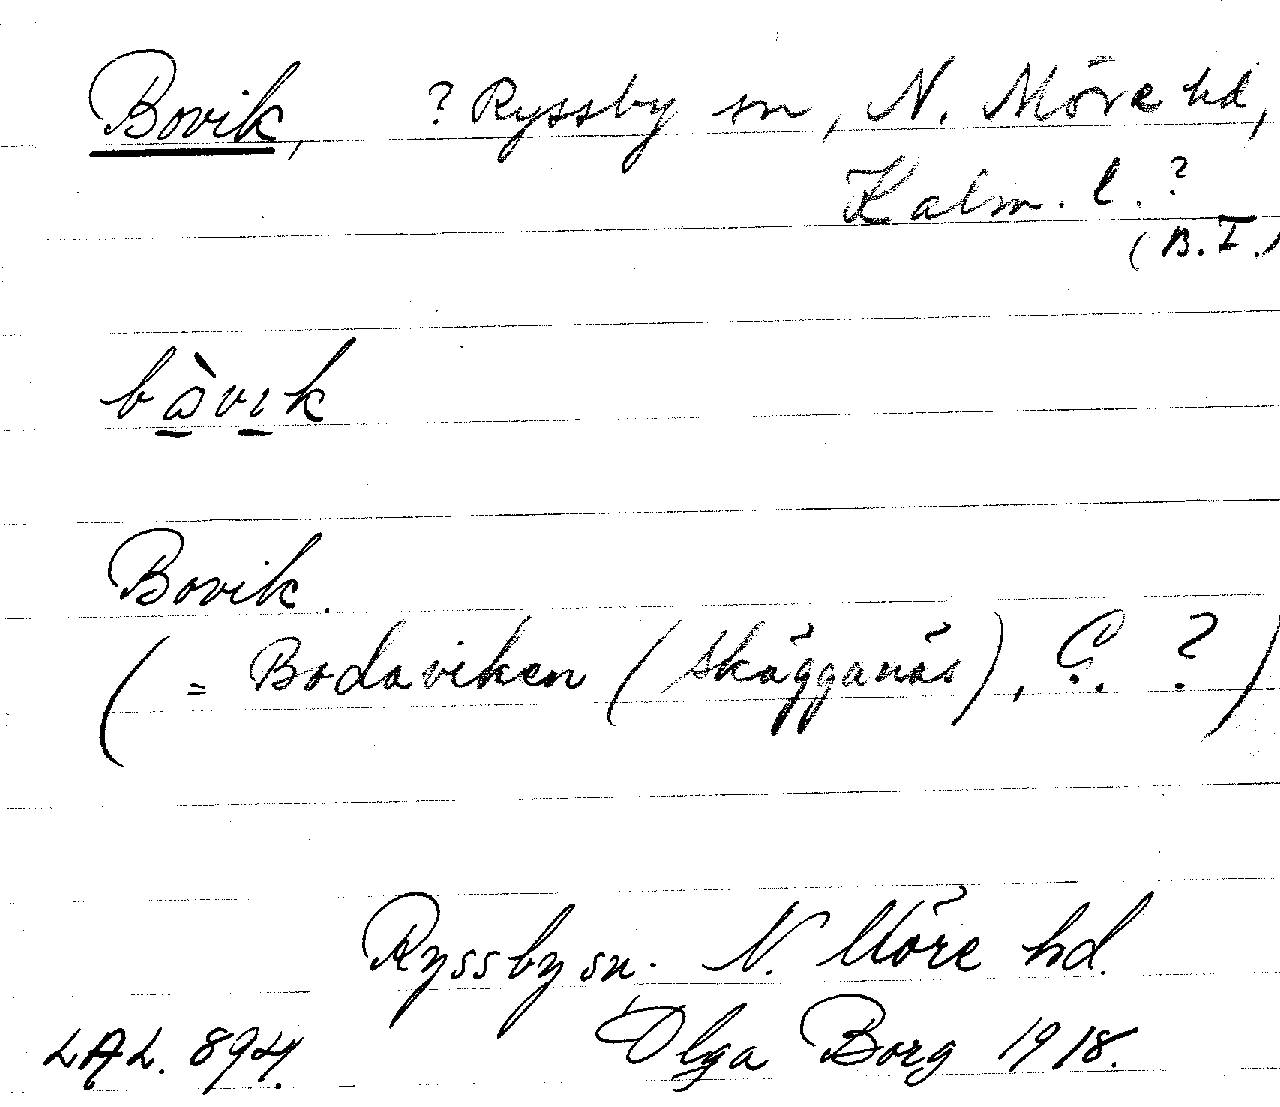 Bovik, ? Ryssby sn, N. Möre hd,
Kalm. l. ?
(B.I.)
bòvik
Bovik.
(= Bodaviken (Skäggenäs), ?)
Ryssby sn. N. Möre hd.
LAL. 894. Olga Borg 1918.